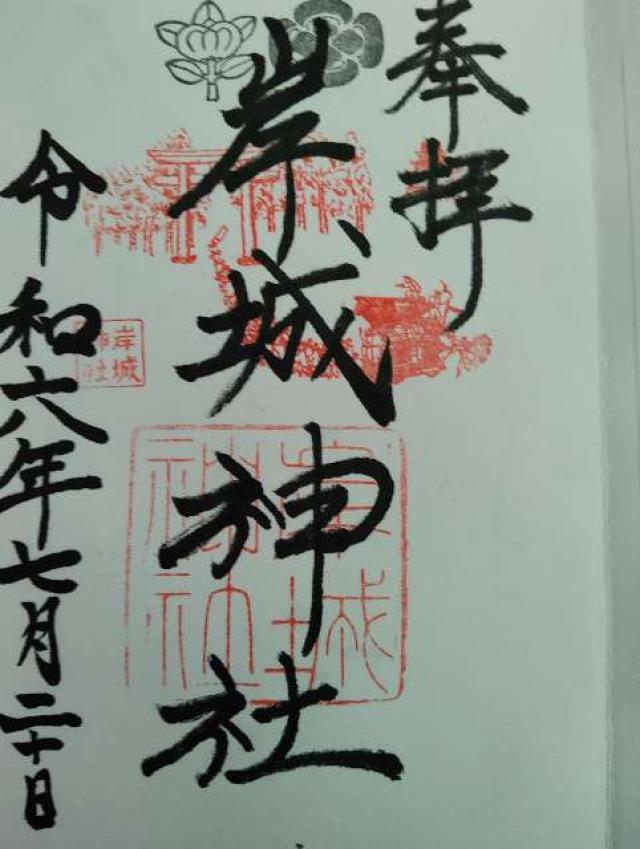 奉拝
岸城神社
岸城
神社
岸城
神社
令和六年七月二十日